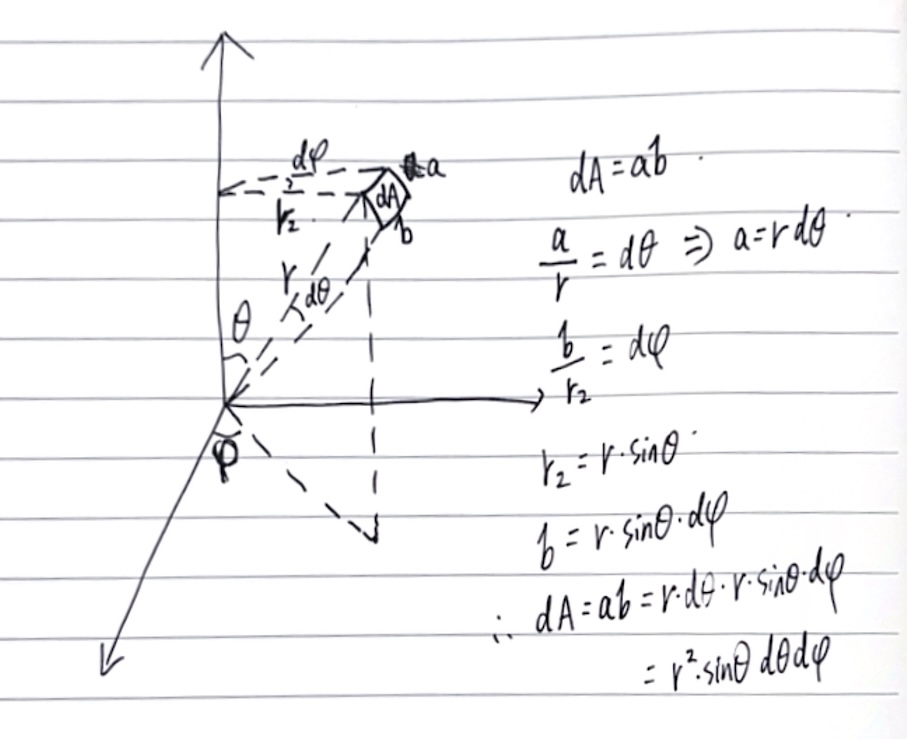 dφ
a
dA
r₂
b
r
dθ
θ
φ
dA = ab
a/r = dθ ⇒ a = rdθ
b/r₂ = dφ
r₂ = r·sinθ
b = r·sinθ·dφ
∴ dA = ab = r·dθ·r·sinθ·dφ
= r²·sinθ dθdφ